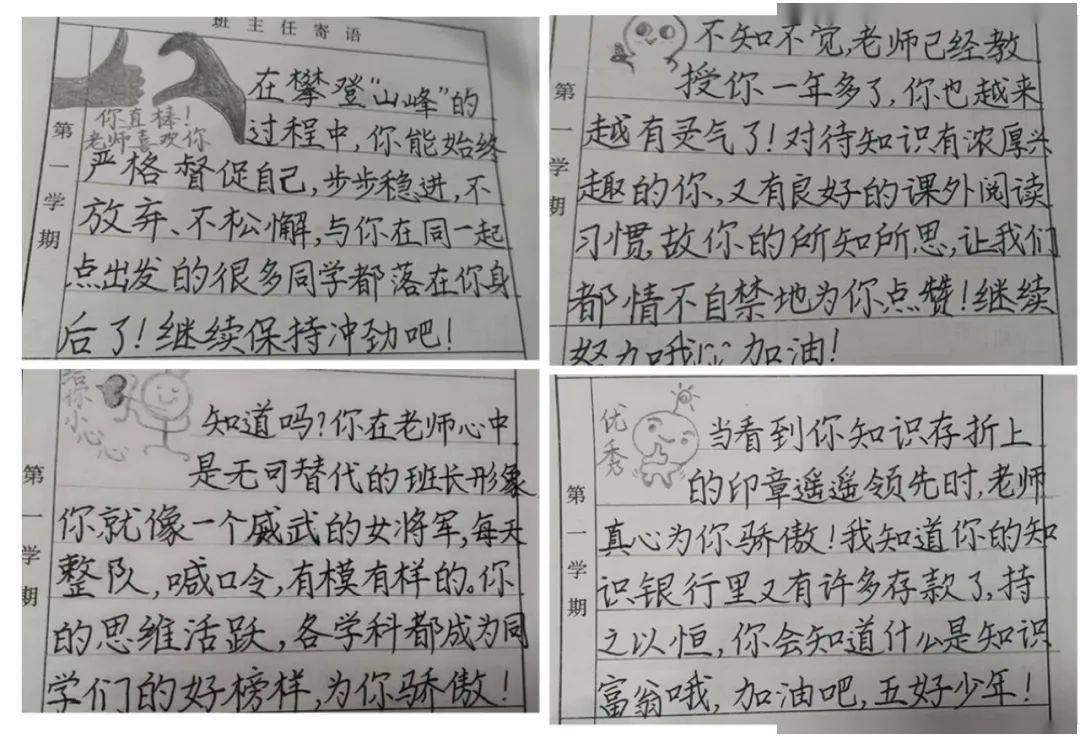 班主任寄语
你真棒！
老师喜欢你
第一学期
在攀登“山峰”的
过程中，你能始终
严格督促自己，步步稳进，不
放弃、不松懈，与你在同一起
点出发的很多同学都落在你身
后了！继续保持冲劲吧！
第一学期
不知不觉，老师已经教
授你一年多了，你也越来
越有灵气了！对待知识有浓厚兴
趣的你，又有良好的课外阅读
习惯，故你的所知所思，让我们
都情不自禁地为你点赞！继续
努力哦！加油！
给你小心心
第一学期
知道吗？你在老师心中
是无可替代的班长形象
你就像一个威武的女将军，每天
整队，喊口令，有模有样的。你
的思维活跃，各学科都成为同
学们的好榜样，为你骄傲！
优秀
第一学期
当看到你知识存折上
的印章遥遥领先时，老师
真心为你骄傲！我知道你的知
识银行里又有许多存款了，持
之以恒，你会知道什么是知识
富翁哦，加油吧，五好少年！